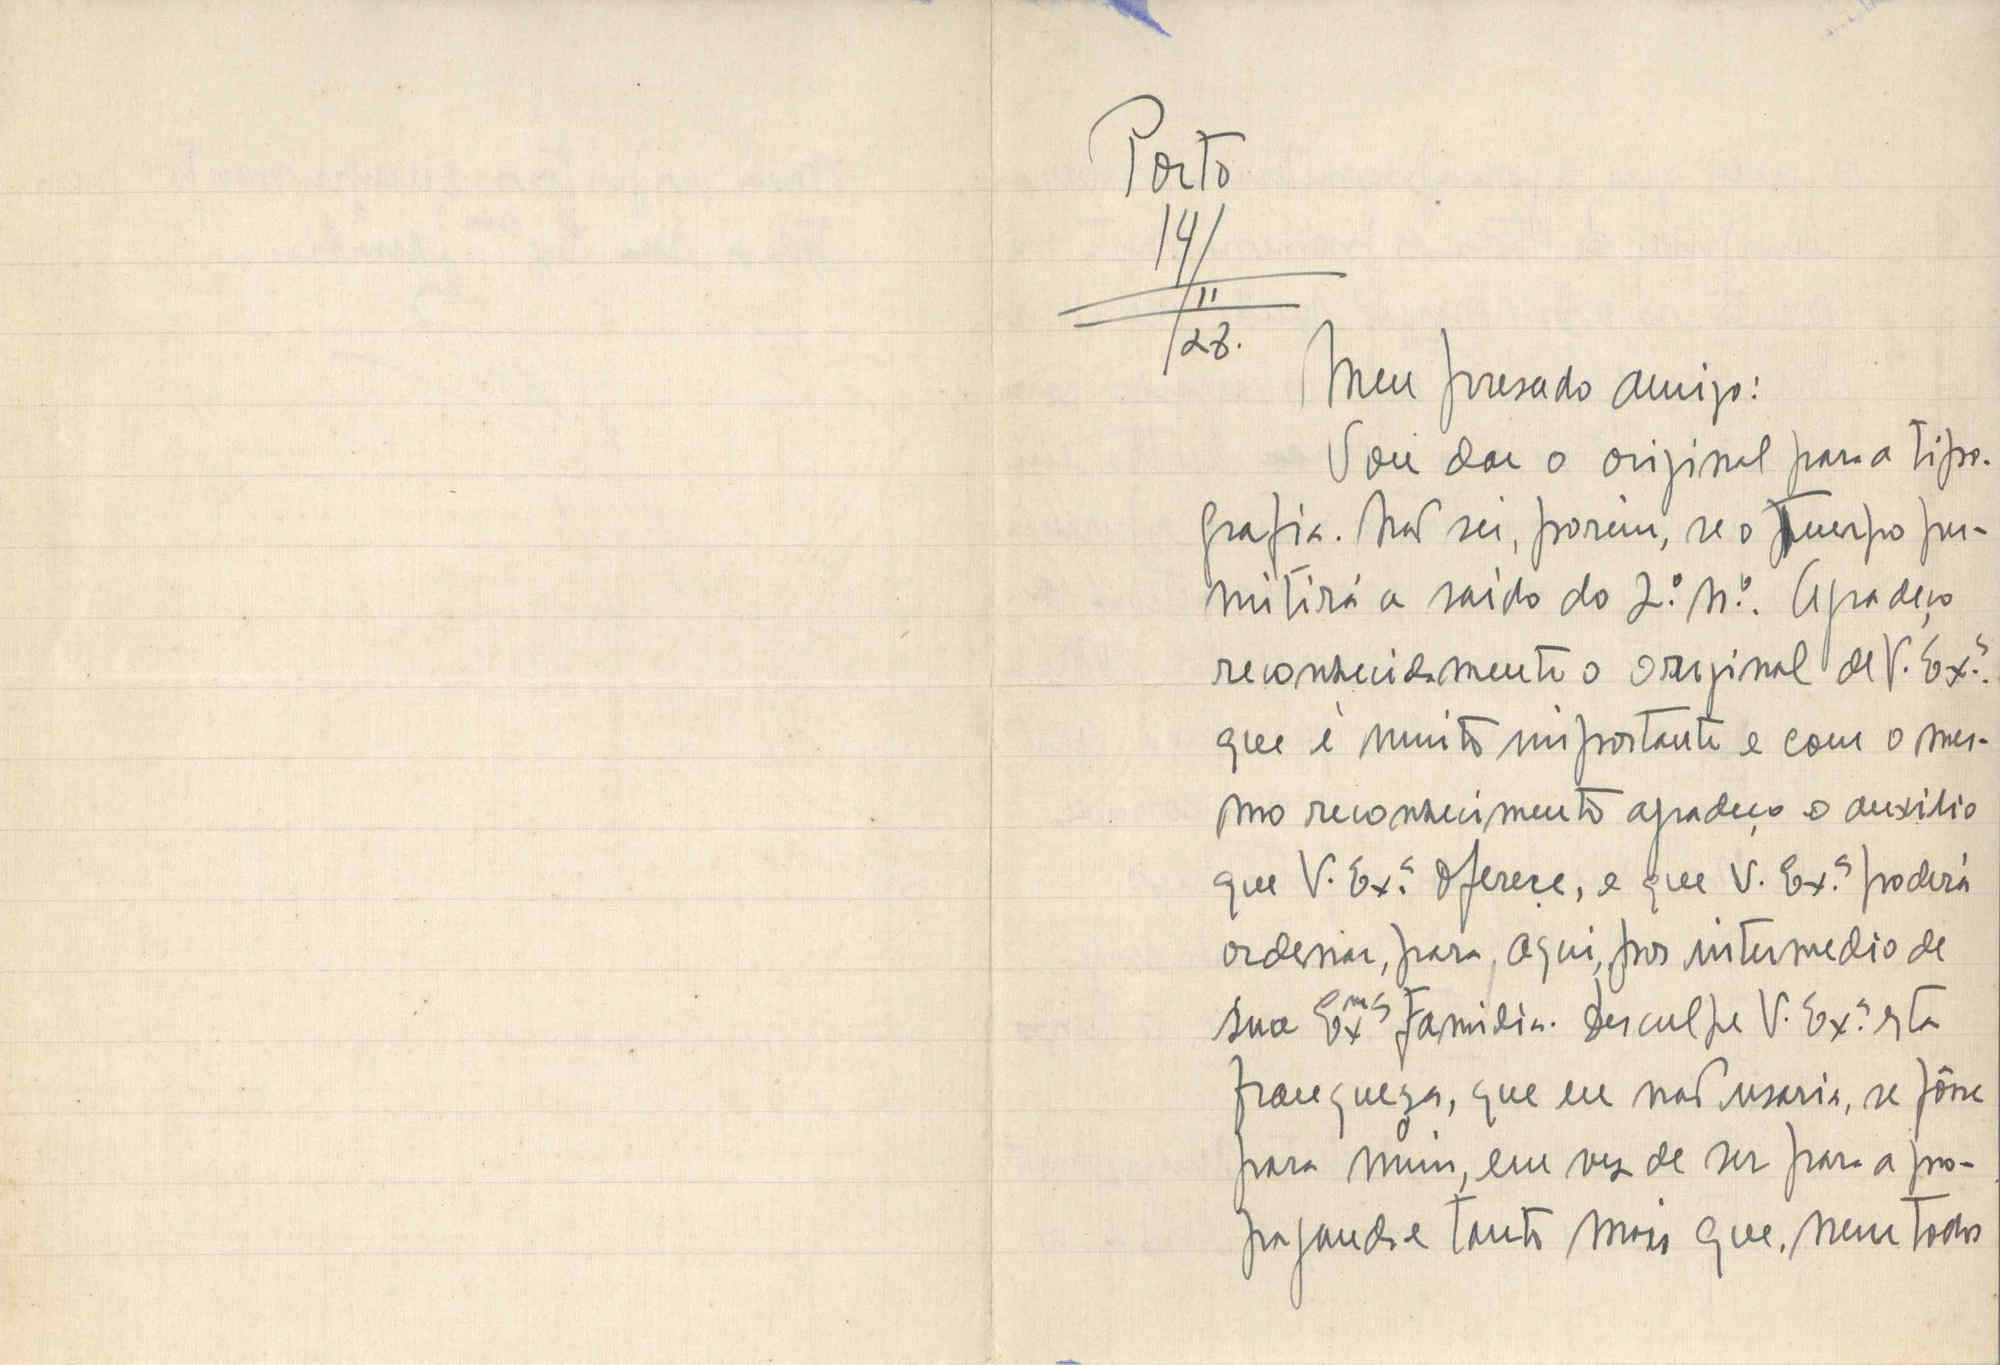 Porto
14/
/11
/28.
Meu presado amigo:
Vou dar o original para a tipo-
grafia. Não sei, porém, se o tempo per-
mitirá a saída do 2.º n.º. Agradeço
reconhecidamente o original de V. Ex.ª.
que é muito importante e com o mes-
mo reconhecimento agradeço o auxilio
que V. Ex.ª oferece, e que V. Ex.ª poderá
ordenar, para aqui, por intermedio de
sua Ex.mª familia. Desculpe V. Ex.ª esta
franqueza, que eu não usaria, se fôsse
para mim, em vez de ser para a pro-
paganda e tanto mais que, nem todos